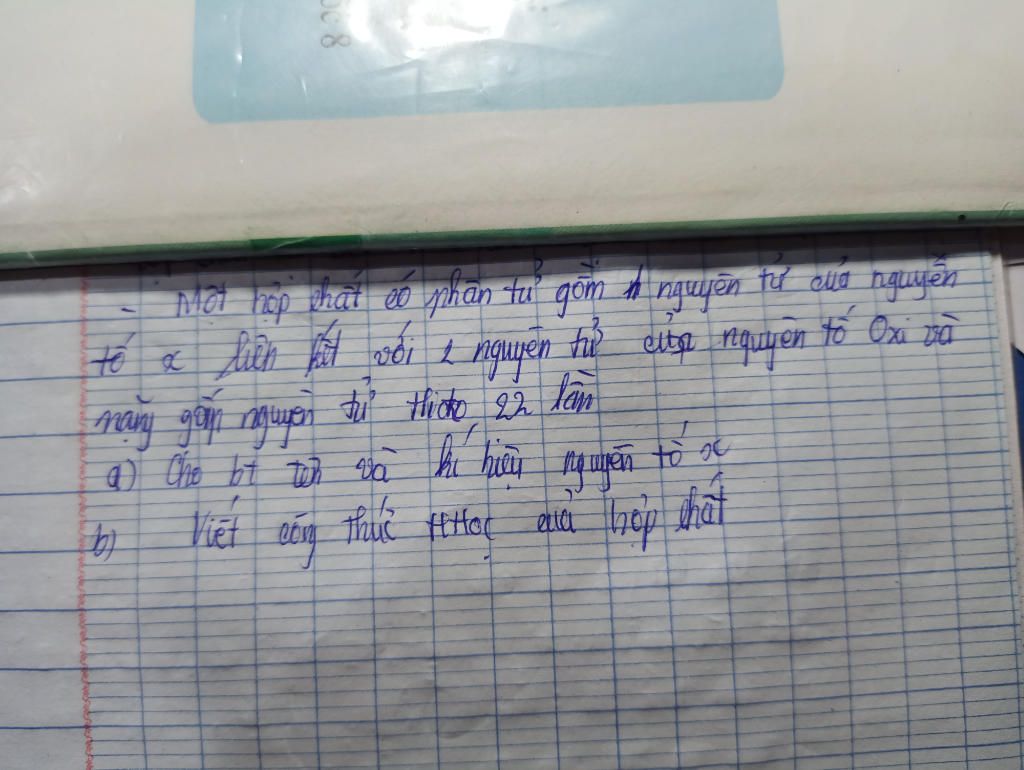 ọc 8
- Một hợp chất có phân tử gồm 1 nguyên tử của nguyên
tố x liên kết với 2 nguyên tử của nguyên tố Oxi và
nặng gấp nguyên tử hidro 22 lần
a) Cho bt tên và kí hiệu nguyên tố x
b) Viết công thức HHọc của hợp chất